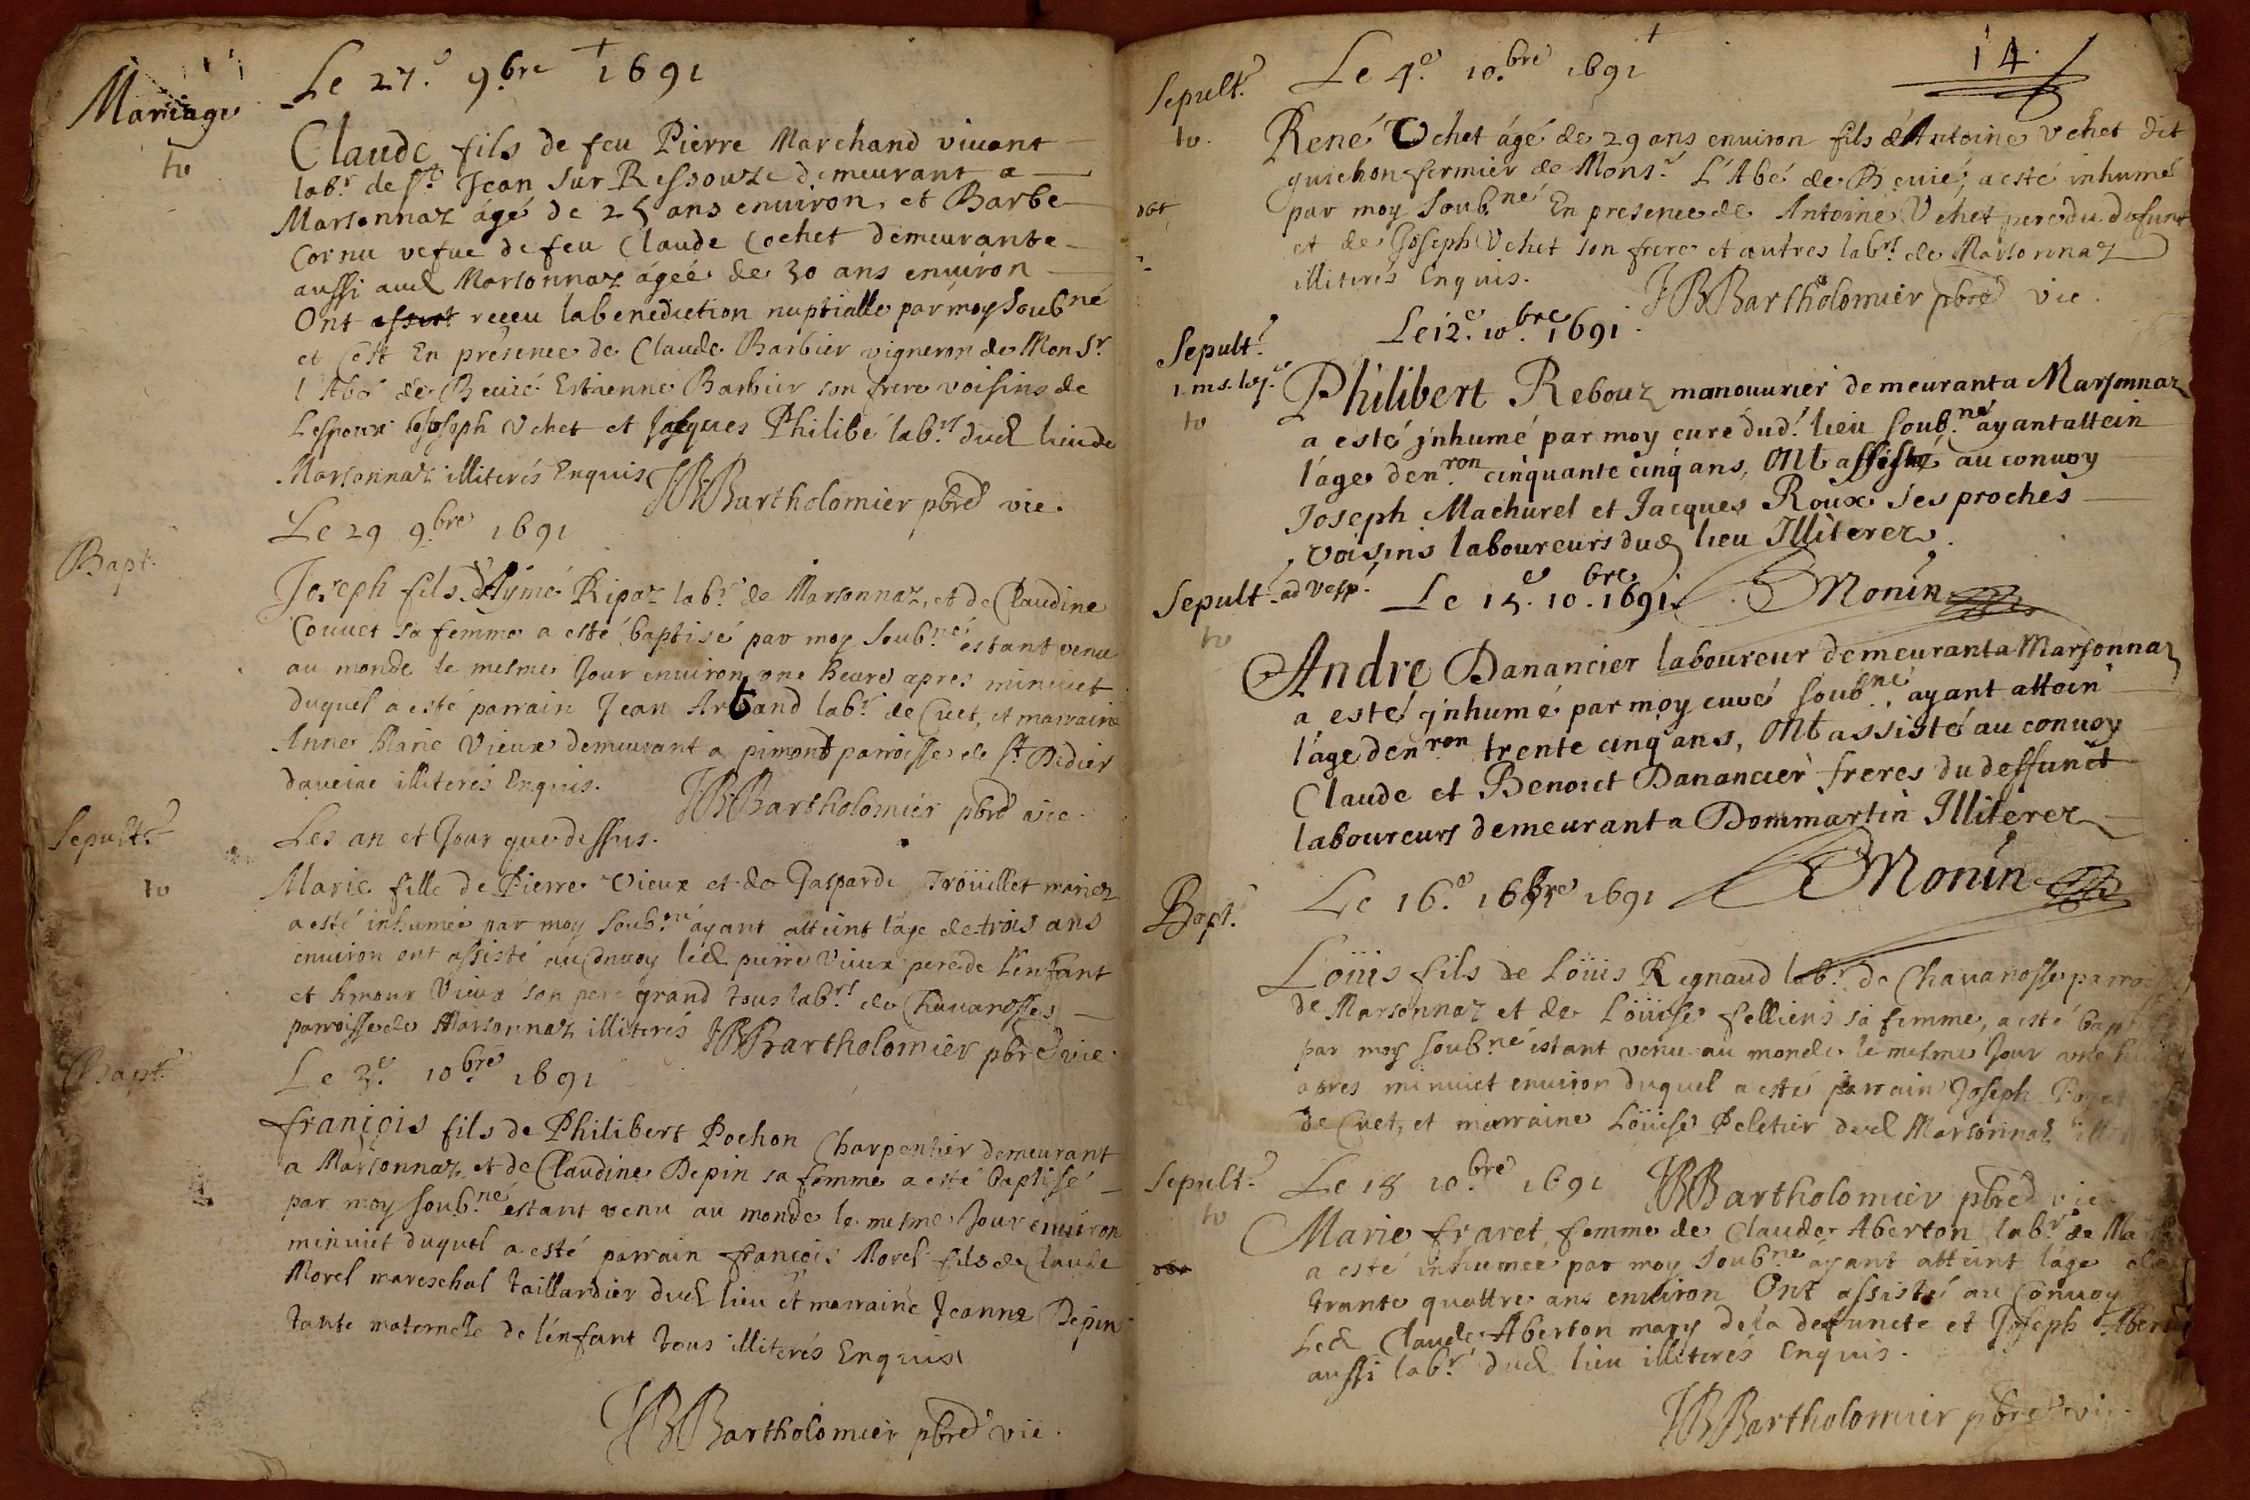 Mariage
Le 27.e 9.bre 1691
Claude fils de feu Pierre Marchand vivant
lab.r de st. Jean sur Ressouze demeurant a
Marsonnaz âgé de 25 ans environ, et Barbe
Cornu vefue de feu Claude Cochet demeurante
aussi aud Marsonnaz âgée de 30 ans environ
Ont receu la benediction nuptialle par moy soub.né
et C'est En présence de Claude Barbier vigneron de Monsr.
l'Abé de Beuié Estienne Barbier son frere voisins de
Lespoux Joseph Vchet et Jacques Philibé lab.rs dud lieu de
Marsonnaz illiterés Enquis JBBartholomier pbre vic.
Bapt.
Le 29 9.bre 1691
Joseph fils d'Aymé Ripaz lab.r de Marsonnaz, et de Claudine
Couuet sa femme a esté baptisé par moy soub.né estant venu
au monde le mesme Jour environ vne heure apres minuict
duquel a esté parrain Jean Arband lab.r de Cuet, et marraine
Anne Marie Vieux demeurant a pimont parroisse de st. Didier
daueiac illiterés Enquis. JBBartholomier pbre vic.
Sepult.
Les an et Jour que dessus.
Marie fille de Pierre Vieux et de Gasparde Troüillet mariez
a esté inhumée par moy soub.né ayant atteint l'âge de trois ans
environ ont assisté au Convoy led pierre Vieux pere de l'enfant
et Amour Vieux son pere grand tous lab.rs de Chauanosses
parroisse de Marsonnaz illiterés JBBartholomier pbre vic.
Bapt.
Le 3.e 10.bre 1691
françois fils de Philibert Pochon Charpentier demeurant
a Marsonnaz et de Claudine Depin sa femme a esté baptisé
par moy soub.né estant venu au monde le mesme Jour environ
minuict duquel a esté parrain françois Morel fils de Claude
Morel mareschal taillardier dud lieu et marraine Jeanne Depin
tante maternelle de l'enfant tous illiterés Enquis
JBBartholomier pbre vic.
14.
Sepult.
Le 4.e 10.bre 1691
René Vchet âgé de 29 ans environ fils d'Antoine Vchet dit
guichon fermier de Mons.r L'Abé de Beuié, a esté inhumé
par moy soub.né En presence de Antoine Vchet pere du defunt
et de Joseph Vchet son frere et autres lab.rs de Marsonnaz
illiterés Enquis. JBBartholomier pbre vic.
Sepult.
Le 12.e 10.bre 1691.
Philibert Rebouz manouurier demeurant a Marsonnaz
a esté jnhumé par moy curé dud. lieu soub.né ayant attein
l'age den.ron cinquante cinq ans, Ont assisté au conuoy
Joseph Machurel et Jacques Roux ses proches
voisins laboureurs dud lieu Illiterez.
Monin
Sepult. ad vesp.
Le 15.e 10.bre 1691
Andre Danancier laboureur demeurant a Marsonnaz
a esté jnhumé par moy curé soub.né, ayant attein
l'age denron trente cinq ans, Ont assisté au conuoy
Claude et Benoict Danancier freres du deffunct
laboureurs demeurant a Dommartin Illiterez
Monin
Bapt.
Le 16.e 1691
Loüis fils de Loüis Regnaud lab.r de Chauanosse
de Marsonnaz et de Loüise felliens sa femme, a esté
par moy soub.né estant venu au monde le mesme Jour vne
apres minuict environ duquel a esté parrain Joseph
de Cuet, et marraine Loüise Peletier dud Marsonnaz
JBBartholomier pbre vic.
Sepult.
Le 18 10.bre 1691
Marie fraret femme de Claude Aberton lab.r de
a esté inhumée par moy soub.né ayant atteint l'âge de
trante quattre ans environ Ont assisté au Conuoy
Led Claude Aberton mary de la defuncte et Joseph
aussi lab.r dud lieu illiterés Enquis.
JBBartholomier pbre vic.